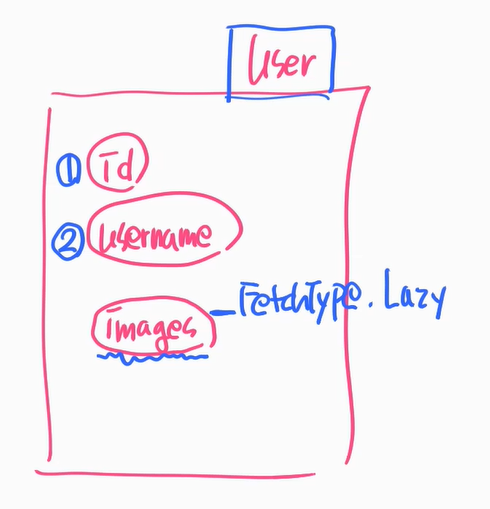 User
① id
② username
images - FetchType.Lazy